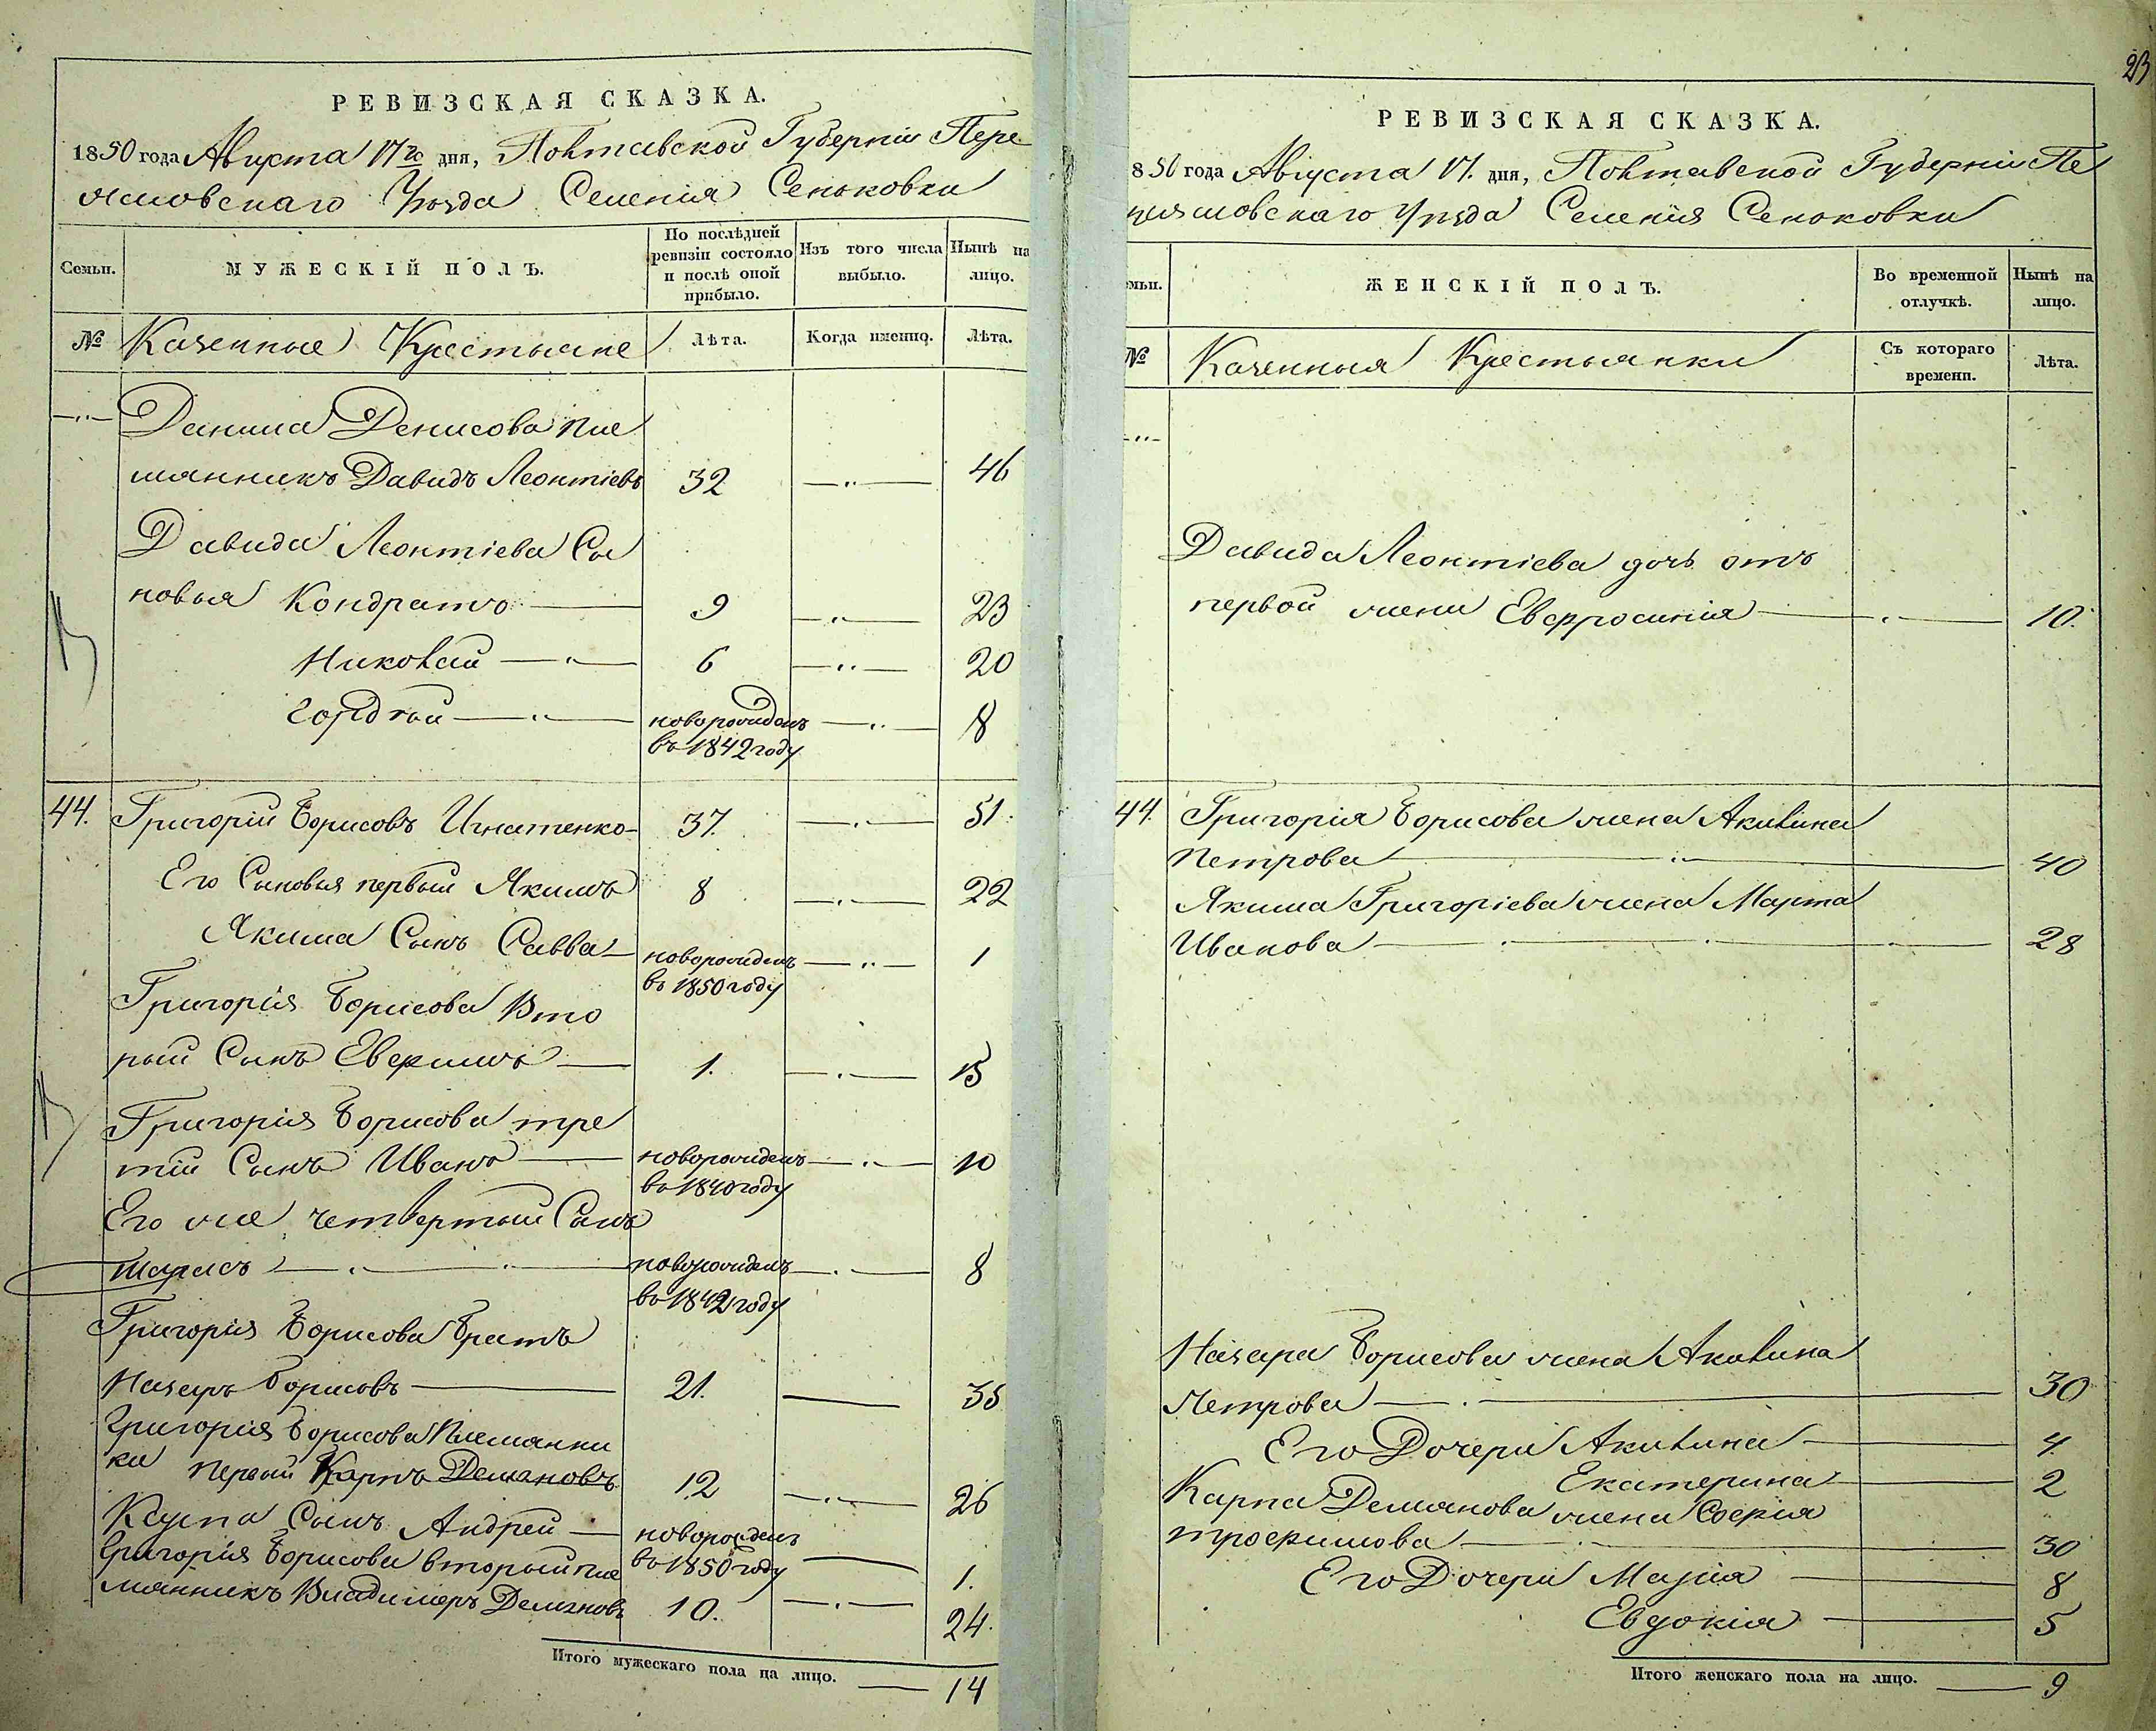 РЕВИЗСКАЯ СКАЗКА.
1850 года Августа 17го дня, Полтавской Губерніи Пере
яславскаго Уезда Селенія Сеньковки
Семьи.
МУЖЕСКІЙ ПОЛЪ.
По послѣдней ревизіи состояло и послѣ оной прибыло.
Изъ того числа выбыло.
Нынѣ на лицо.
№ Казенные Крестьяне Лѣта. Когда именно. Лѣта.
—"— Данила Денисова пле
мянникъ Давидъ Леонтіевъ 32 —"— 46
Давида Леонтіева Сы
новья Кондратъ — 9 —"— 23
Николай —"— 6 —"— 20
Гордѣй —"— новорожденъ —"— 8
въ 1842 году
44. Григорій Борисовъ Игнатенко — 37. —"— 51.
Его Сыновья первый Якимъ 8 —"— 22
Якима Сынъ Савва — новорожденъ —"— 1
въ 1850 году
Григорія Борисова Вто
рый Сынъ Евфимъ — 1. —"— 15
Григорія Борисова тре
тій Сынъ Иванъ — новорожденъ —"— 10
въ 1840 году
Его же четвертый Сынъ
Тарасъ — новорожденъ —"— 8
въ 1842 году
Григорія Борисова Братъ
Назаръ Борисовъ — 21. — 35
Григорія Борисова Племянни
ки первый Карпъ Демяновъ 12 —"— 26
Карпа Сынъ Андрей — новорожденъ
въ 1850 году — 1.
Григорія Борисова вторый пле
мянникъ Владимеръ Демяновъ 10. —"— 24.
Итого мужескаго пола на лицо. — 14
23
РЕВИЗСКАЯ СКАЗКА.
850 года Августа 17. дня, Полтавской Губерніи Пе
реяславскаго Уезда Селенія Сеньковки
емьи.
ЖЕНСКІЙ ПОЛЪ.
Во временной отлучкѣ.
Нынѣ на лицо.
№ Казенныя Крестьянки Съ котораго времени. Лѣта.
—"—
Давида Леонтіева дочь отъ
первой жены Евфросинія —"— 10.
44. Григорія Борисова жена Акилина
Петрова — 40
Якима Григоріева жена Марта
Иванова — 28
Назара Борисова жена Акилина
Петрова — 30
Его Дочери Акилина — 4
Екатерина — 2
Карпа Демянова жена Софія
Трофимова — 30
Его Дочери Марія — 8
Евдокія — 5
Итого женскаго пола на лицо. — 9